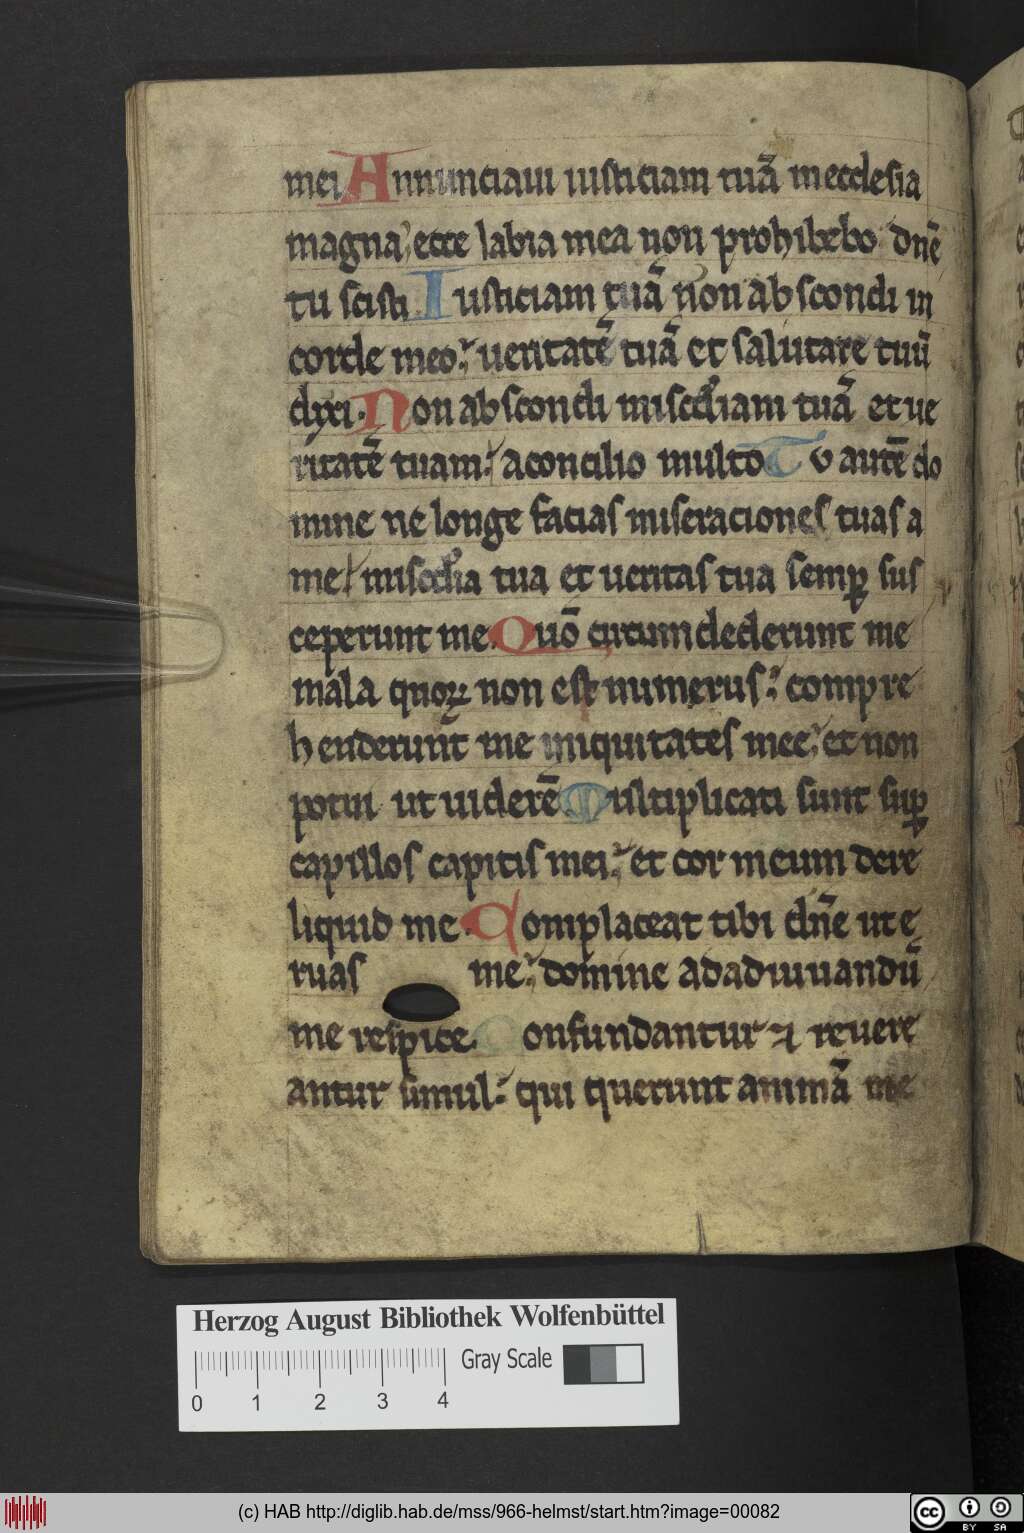 mei Annunciaui iusticiam tuā in ecclesia
magna, ecce labia mea non prohibebo dnē
tu scisti. Iusticiam tuā non abscondi in
corde meo: ueritatē tuā et salutare tuū
dixi. Non abscondi misc̄diam tuā et ue
ritatē tuam: a concilio multo Tu autē do
mine ne longe facias miseraciones tuas a
me: misc̄dia tua et ueritas tua semꝑ sus
ceperunt me. Quō circumdederunt me
mala quoꝝ non est numerus: compre
henderunt̄ me iniquitates mee, et non
potui ut uiderē Multiplicati sunt suꝑ
capillos capitis mei: et cor meum dere
liquid me. Complaceat tibi dn̄e ut e
ruas me: domine ad adiuuandū
me respice. Confundantur ⁊ reuere
antur simul: qui querunt animā me
Herzog August Bibliothek Wolfenbüttel
Gray Scale
0 1 2 3 4
(c) HAB http://diglib.hab.de/mss/966-helmst/start.htm?image=00082
cc BY SA